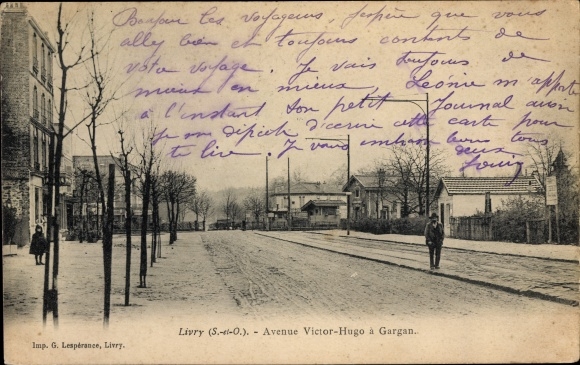 Bonjour les voyageurs, j'espère que vous
allez bien et toujours contents de
votre voyage. Je vais toujours de
mieux en mieux. Léonie m'apporte
à l'instant son petit Journal aussi
je me dépêche d'écrire cette carte pour
te lire. Je vous embrasse tous
deux
Livry (S.-et-O.). - Avenue Victor-Hugo à Gargan.
Imp. G. Lespérance, Livry.